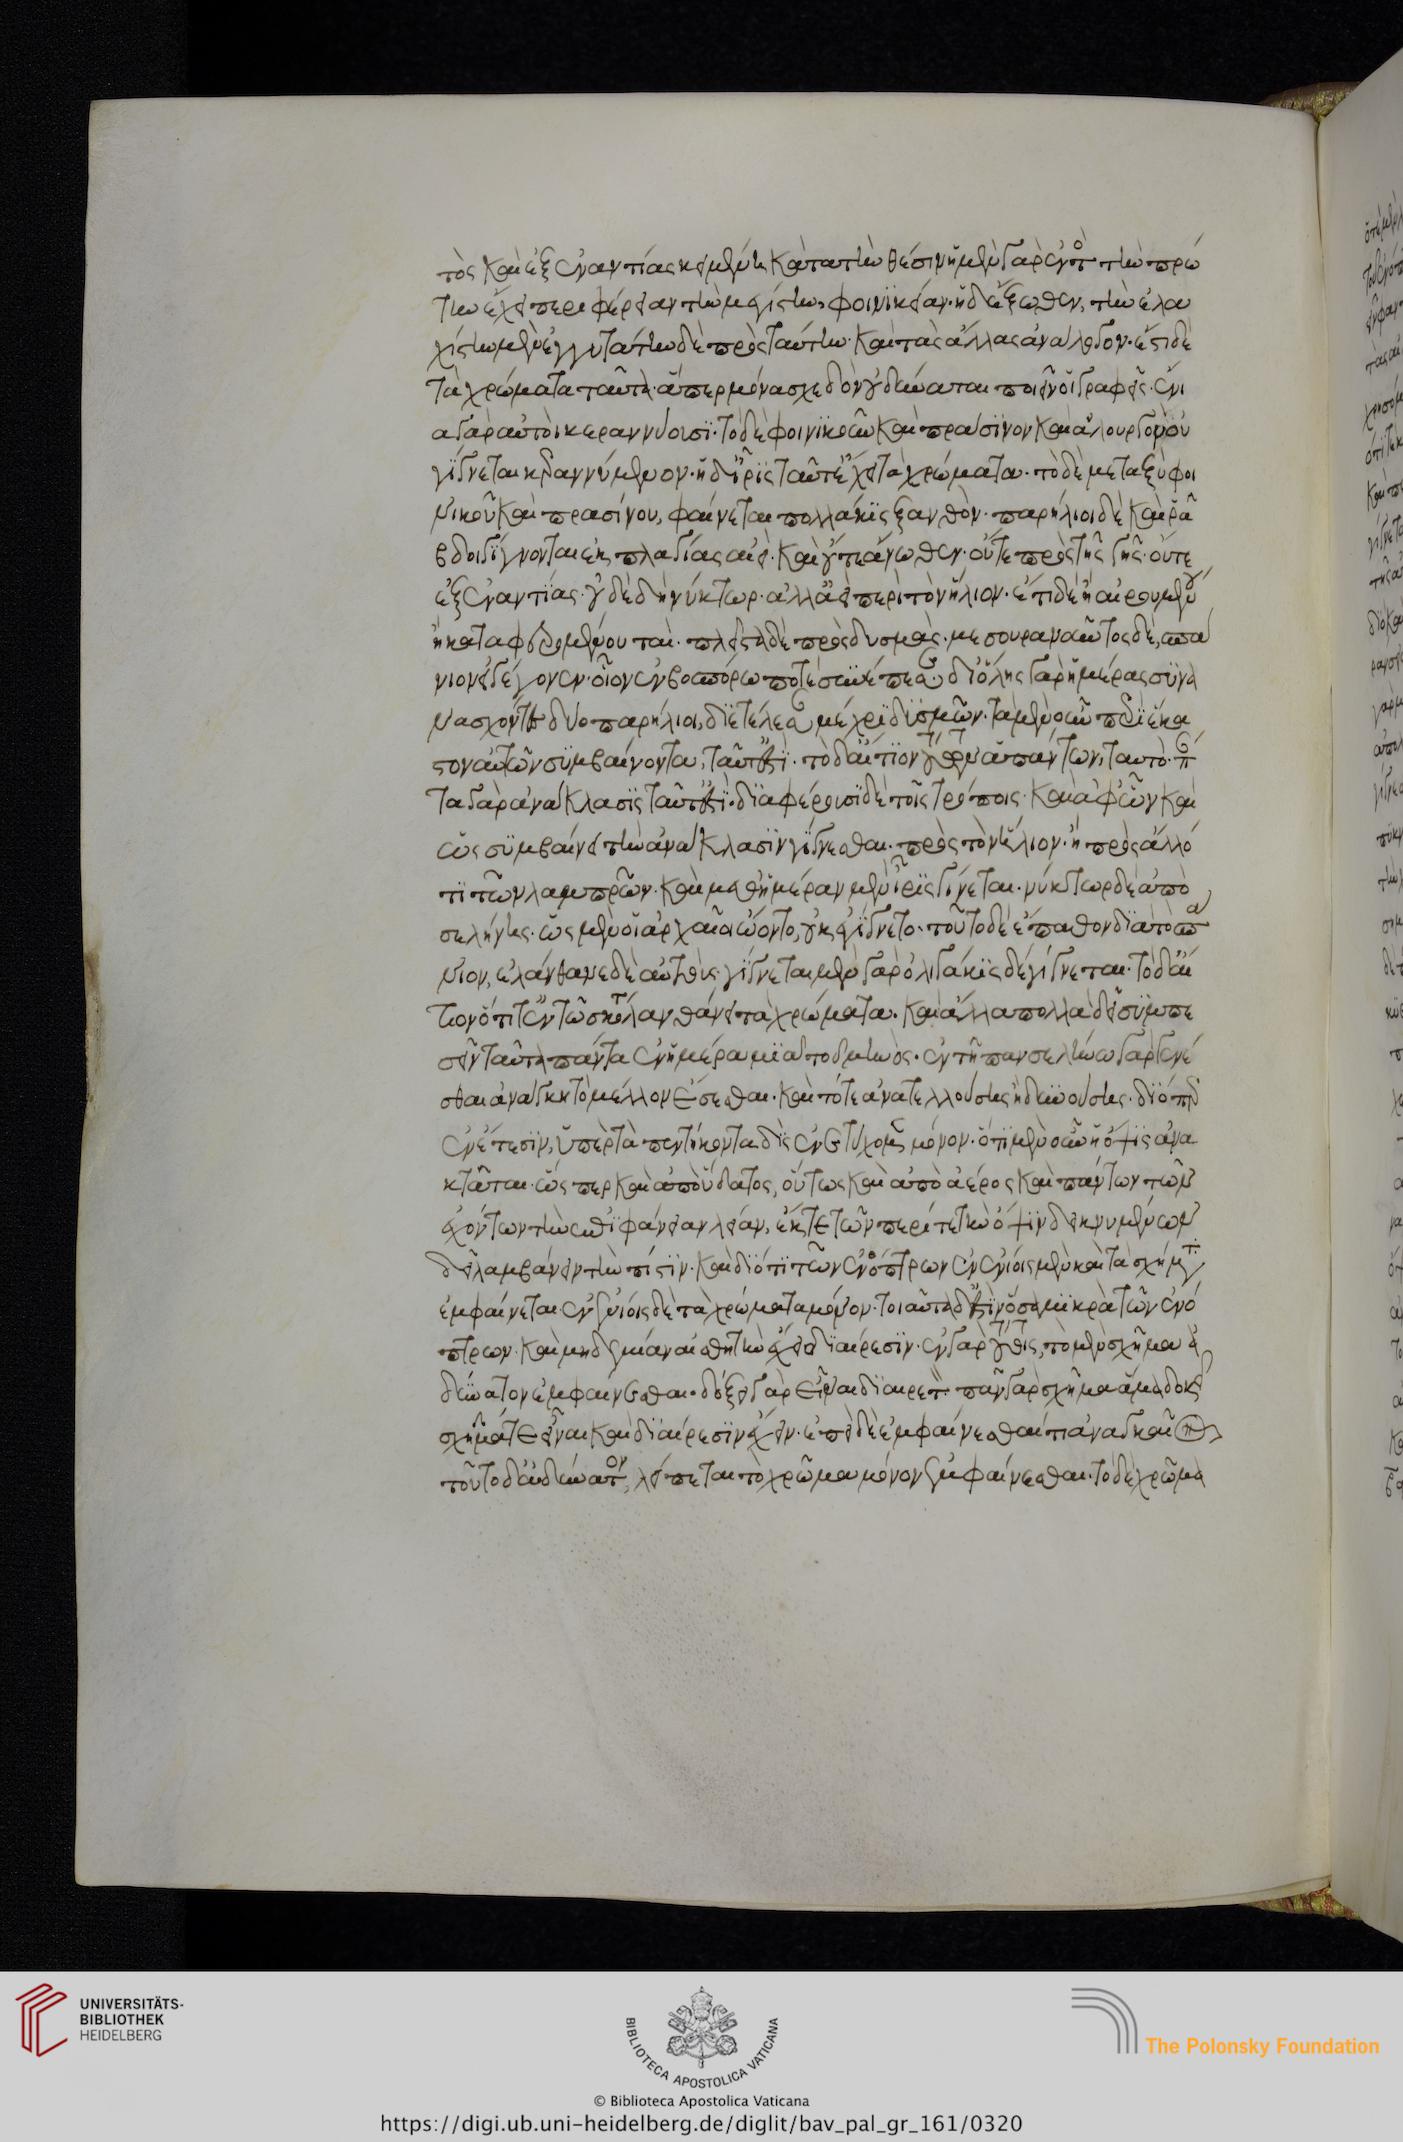 τὸς καὶ ἐξ ἐναντίας κειμένης κατὰ τὴν θέσιν ἡ μὲν γὰρ ἐντὸς τὴν πρώ
την ἔχει περιφέρειαν τὴν μεγίστην, φοινικείαν· ἡ δ' ἔξωθεν, τὴν ἐλα
χίστην μὲν ἐγγυτάτην δὲ πρὸς ταύτην· καὶ τὰς ἄλλας ἀνάλογον. ἔστι δὲ
τὰ χρώματα ταῦτα. ἅπερ μόνα σχεδὸν οὐ δύνανται ποιεῖν οἱ γραφεῖς. ἔνι
α γὰρ αὐτοὶ κεραννύουσι. τὸ δὲ φοινικοῦν καὶ πράσινον καὶ ἁλουργὸν οὐ
γίγνεται κεραννύμενον. ἡ δ' ἶρις ταῦτ' ἔχει τὰ χρώματα. τὸ δὲ μεταξὺ φοι
νικοῦ καὶ πρασίνου, φαίνεται πολλάκις ξανθόν. παρήλιοι δὲ καὶ ῥά
βδοι γίγνονται ἐκ πλαγίας αἰεί. καὶ οὔτε ἄνωθεν. οὔτε πρὸς τῆς γῆς. οὔτε
ἐξ ἐναντίας. οὐδὲ δὴ νύκτωρ. ἀλλ' ἀεὶ περὶ τὸν ἥλιον. ἔτι δὲ ἢ αἰρομένου
ἢ καταφερομένου τὰ πλεῖστα δὲ πρὸς δυσμάς. μεσουρανοῦντος δὲ, σπά
νιον εἰ γέγονεν. οἷον ἐν βοσπόρω ποτὲ συνέπεσε. δι' ὅλης γὰρ ἡμέρας συνα
νασχόντες δύο παρήλιοι, διετέλεσαν μέχρι δυσμῶν. τὰ μὲν οὖν περὶ ἕκα
στον αὐτῶν συμβαίνοντα, ταῦτ' ἐστί. τὸ δ' αἴτιον τούτων ἁπάντων, ταυτό. πάν
τα γὰρ ἀνάκλασις ταῦτ' ἐστί. διαφέρουσι δὲ τοῖς τρόποις. καὶ ἀφ' ὧν καὶ
ὡς συμβαίνει τὴν ἀνάκλασιν γίγνεσθαι. πρὸς τὸν ἥλιον. ἢ πρὸς ἄλλό
τι τῶν λαμπρῶν. καὶ μεθ' ἡμέραν μὲν ἶρις γίνεται. νύκτωρ δὲ ἀπὸ
σελήνης. ὡς μὲν οἱ ἀρχαῖοι ᾤοντο, οὐκ ἐγίγνετο. τοῦτο δὲ ἔπαθον διὰ τὸ σπά
νιον, ἐλάνθανε δὲ αὐτούς. γίγνεται μὲν γὰρ ὀλιγάκις δὲ γίγνεται. τὸ δ' αἴ
τιον ὅτι τ' ἐν τῶ σκότει λανθάνει τὰ χρώματα. καὶ ἄλλα πολλὰ δεῖ συμπε
σεῖν ταῦτα πάντα ἐν ἡμέρα μία τοῦ μηνός. ἐν τῆ πανσελήνω γὰρ γενέ
σθαι ἀνάγκη τὸ μέλλον ἔσεσθαι. καὶ τότε ἀνατελλούσης ἢ δυνούσης. διόπερ
ἐν ἔτεσιν, ὑπὲρ τὰ πεντήκοντα δὶς ἐνετύχομεν μόνον. ὅτι μὲν οὖν ἡ ὄψις ἀνα
κλᾶται. ὥσπερ καὶ ἀπὸ ὕδατος, οὕτως καὶ ἀπὸ ἀέρος καὶ πάντων τῶν
ἐχόντων τὴν ἐπιφάνειαν λείαν, ἐκ τε τῶν περὶ τὴν ὄψιν δεικνυμένων
δεῖ λαμβάνειν τὴν πίστιν. καὶ διότι τῶν ἐνόπτρων ἐν ἐνίοις μὲν καὶ τὰ σχήματα
ἐμφαίνεται ἐν ἐνίοις δὲ τὰ χρώματα μόνον. τοιαῦτα δ' ἐστὶν ὅσα μικρὰ τῶν ἐνό
πτρων. καὶ μηδεμίαν αἰσθητὴν ἔχει διαίρεσιν. ἐν γὰρ τούτοις, τὸ μὲν σχῆμα ἀ
δύνατον ἐμφαίνεσθαι. δόξει γὰρ εἶναι διαιρετόν πᾶν γὰρ σχῆμα ἅμα δοκεῖ
σχῆμά τε εἶναι καὶ διαίρεσιν ἔχειν. ἐπεὶ δὲ ἐμφαίνεσθαί τι ἀναγκαῖον,
τοῦτο δ' ἀδύνατον, λείπεται τὸ χρῶμα μόνον ἐμφαίνεσθαι. τὸ δὲ χρῶμα
UNIVERSITÄTS-
BIBLIOTHEK
HEIDELBERG
BIBLIOTECA APOSTOLICA VATICANA
The Polonsky Foundation
© Biblioteca Apostolica Vaticana
https://digi.ub.uni-heidelberg.de/diglit/bav_pal_gr_161/0320